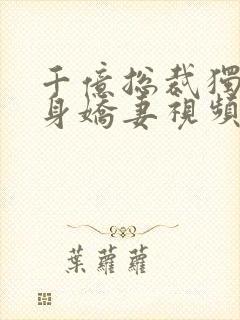 千億總裁獨
身嬌妻視頻
葉蘿蘿